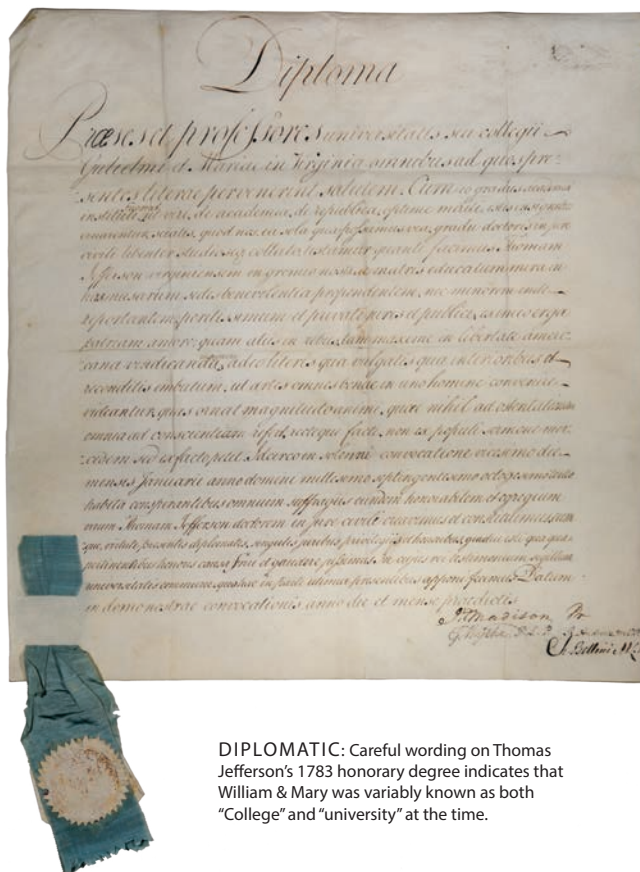 Diploma
Præses et professores universitatis seu collegii
Gulielmi et Mariae in Virginia omnibus ad quos præ-
sentes literae pervenerint salutem. Cum eo gradus academici
instituti ut viri, de academia, de republica, optime
quod nos ea sola qua possumus via, gradu doctoris in jure
civili libenter collato, testamur quanti facimus Thomam
Jefferson virginiensem in gremio nostrae matris educatum
musarum sedes benevolentia propendentem, nec minorem inde
reportantem
patriam amore: quam aliis in rebus, tam maxime in libertate ameri-
cana vindicanda, adeo literis qua vulgatis qua interioribus et
reconditis imbutum, ut artes omnes in uno homine convenire
videantur, quas ornat magnitudo animi, quae nihil ad ostentationem
omnia ad conscientiam refert, recteque facti, non ex populi sermone mer-
cedem sed ex facto petit. Idcirco in solenni convocatione vicesimo die
mensis Januarii anno domini millesimo septingentesimo octogesimo
habita conspirantibus omnium suffragiis eundem honorabilem et egregium
virum Thomam Jefferson doctorem in jure civili creavimus et constituimus
que, virtute, praesentis diplomatis, singulis juribus privilegiis et honoribus
pertinentibus honoris causa frui et gaudere jussimus. In cujus rei testimonium sigillum
universitatis commune, praesentibus apponi fecimus. Datum
in domo nostrae convocationis anno die et mense praedictis
J. Madison Pr
G. Wythe
C. Bellini
DIPLOMATIC: Careful wording on Thomas
Jefferson's 1783 honorary degree indicates that
William & Mary was variably known as both
"College" and "university" at the time.